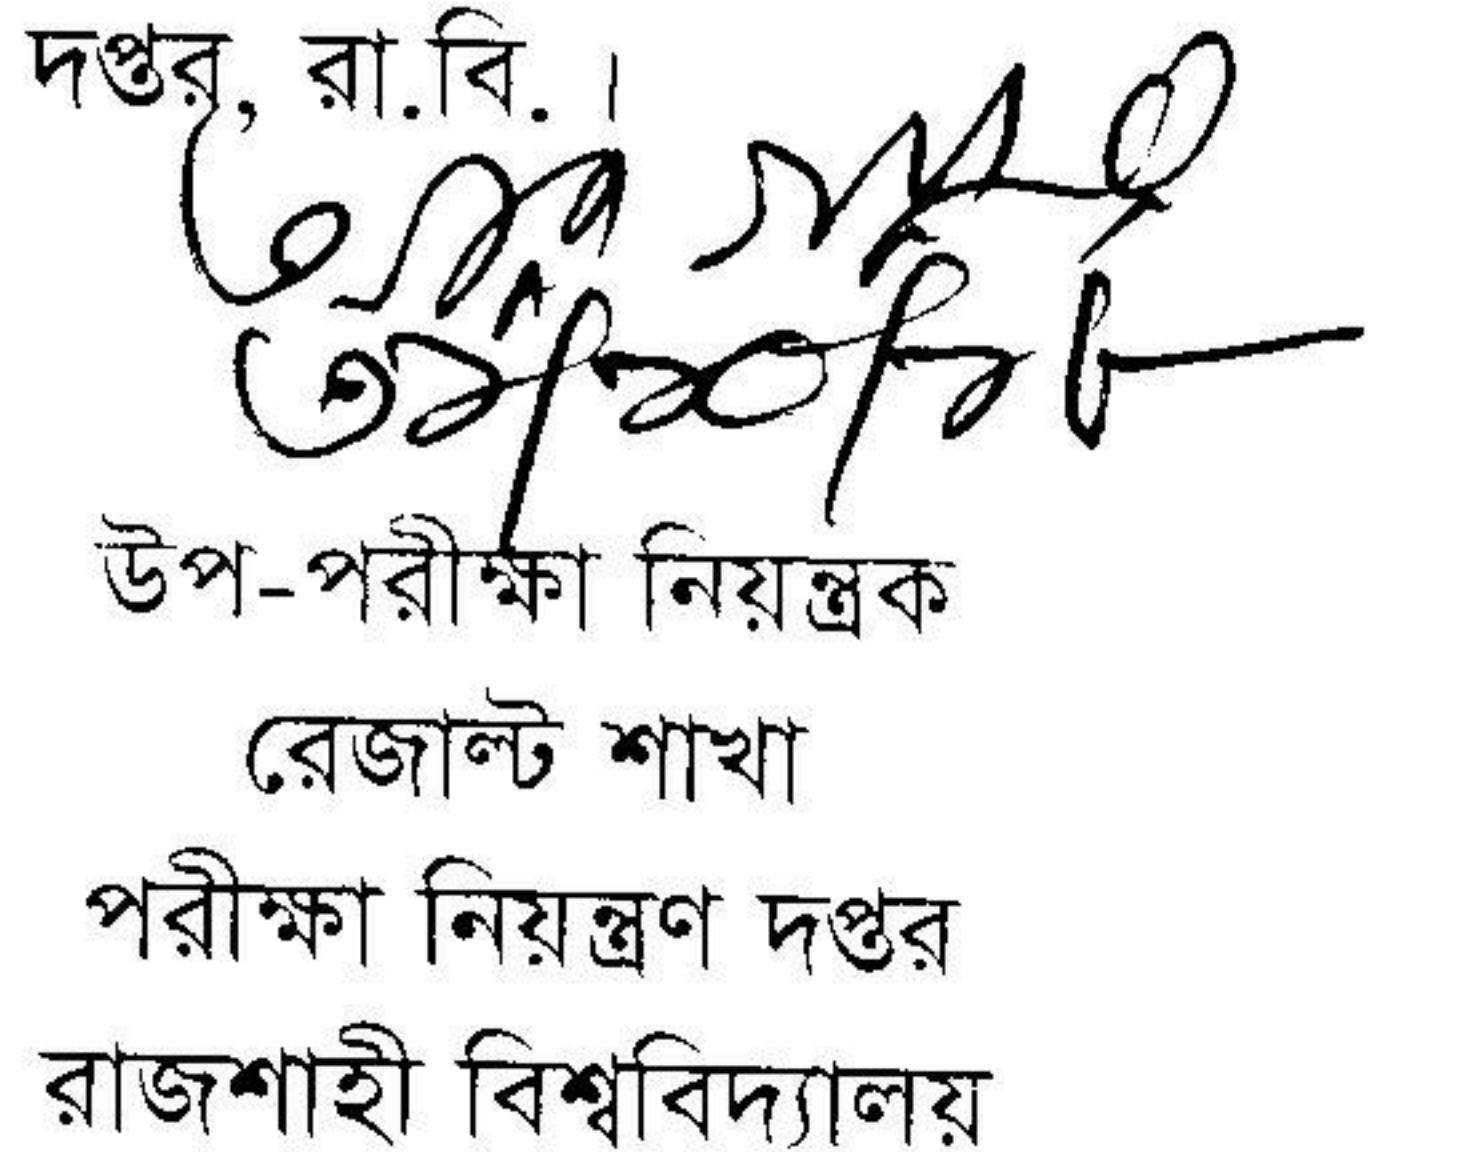 দপ্তর, রা.বি. ।
উপ-পরীক্ষা নিয়ন্ত্রক
রেজাল্ট শাখা
পরীক্ষা নিয়ন্ত্রণ দপ্তর
রাজশাহী বিশ্ববিদ্যালয়